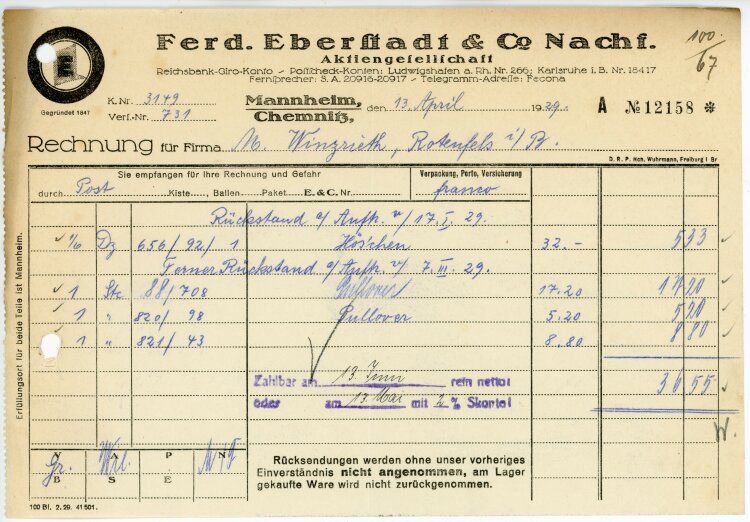 E
Gegründet 1847
Ferd. Eberstadt & Co Nachf.
Aktiengesellschaft
Reichsbank-Giro-Konto – Postscheck-Konten: Ludwigshafen a. Rh. Nr. 266; Karlsruhe i. B. Nr. 18417
Fernsprecher: S. A. 20916-20917 – Telegramm-Adresse: Fecona
100/67
K. Nr. 3149
Vers.-Nr. 731
Mannheim,
Chemnitz,
den 13 April 1929.
A № 12158 *
Rechnung für Firma M. Wingrieth, Rotenfels i/B.
D. R. P. Hch. Wuhrmann, Freiburg i Br
Sie empfangen für Ihre Rechnung und Gefahr
Verpackung, Porto, Versicherung
durch Post Kiste Ballen Paket E. & C. Nr. franco
Rückstand a/ Auftr. v/ 17. I. 29.
1/6 Dz 656/92/1 Höschen 32.- 5 33
Ferner Rückstand a/ Auftr. v/ 7. III. 29.
1 Stc 88/708 Pullover 17.20 17 20
1 " 820/98 Pullover 5.20 5 20
1 " 821/43 8.80 8 80
36 55
Zahlbar am 13 Juni rein netto!
oder am 13. Mai mit 2 % Skonto!
W.
V A P N
Gr. Wil.
B S E
Rücksendungen werden ohne unser vorheriges
Einverständnis nicht angenommen, am Lager
gekaufte Ware wird nicht zurückgenommen.
100 Bl. 2. 29. 41501.
Erfüllungsort für beide Teile ist Mannheim.